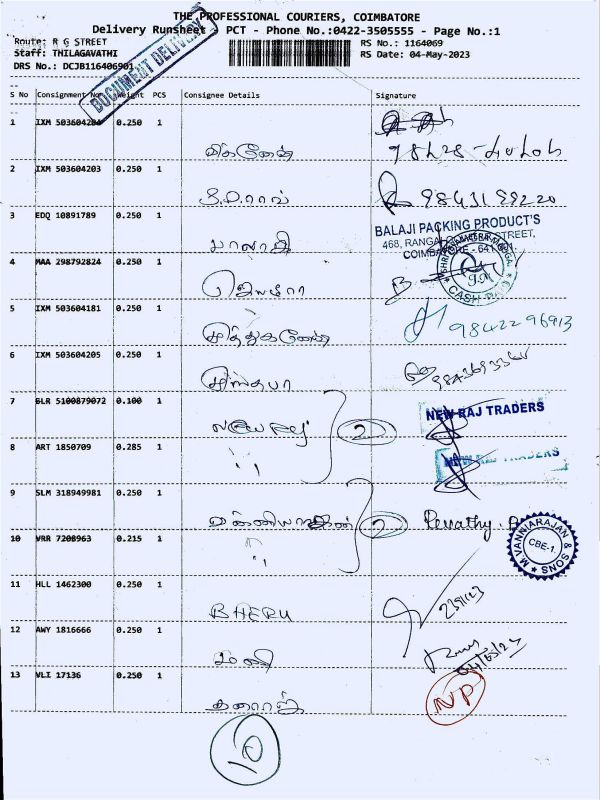 THE PROFESSIONAL COURIERS, COIMBATORE
Delivery Runsheet - PCT - Phone No.:0422-3505555 - Page No.:1
Route: R G STREET
RS No.: 1164069
Staff: THILAGAVATHI
RS Date: 04-May-2023
DRS No.: DCJB116406901
DOCUMENT DELIVERY
S No Consignment No Weight PCS Consignee Details Signature
1 IXM 503604204 0.250 1
கணேஷ்
2 IXM 503604203 0.250 1
9843199220
3 EDQ 10891789 0.250 1
பாலாஜி
BALAJI PACKING PRODUCT'S
4 MAA 298792824 0.250 1
CASH PAID
5 IXM 503604181 0.250 1
முத்துகணேஷ்
9842296913
6 IXM 503604205 0.250 1
7 BLR 5100879072 0.100 1
2
NEW RAJ TRADERS
8 ART 1850709 0.285 1
" NEW RAJ TRADERS
9 SLM 318949981 0.250 1
வன்னியராஜன் 2 Revathy. B
10 VRR 7208963 0.215 1
"
M.VANNIARAJAN & SONS
CBE-1.
11 HLL 1462300 0.250 1
BHERU
12 AWY 1816666 0.250 1
மணி
04/05/23
13 VLI 17136 0.250 1
NP
10